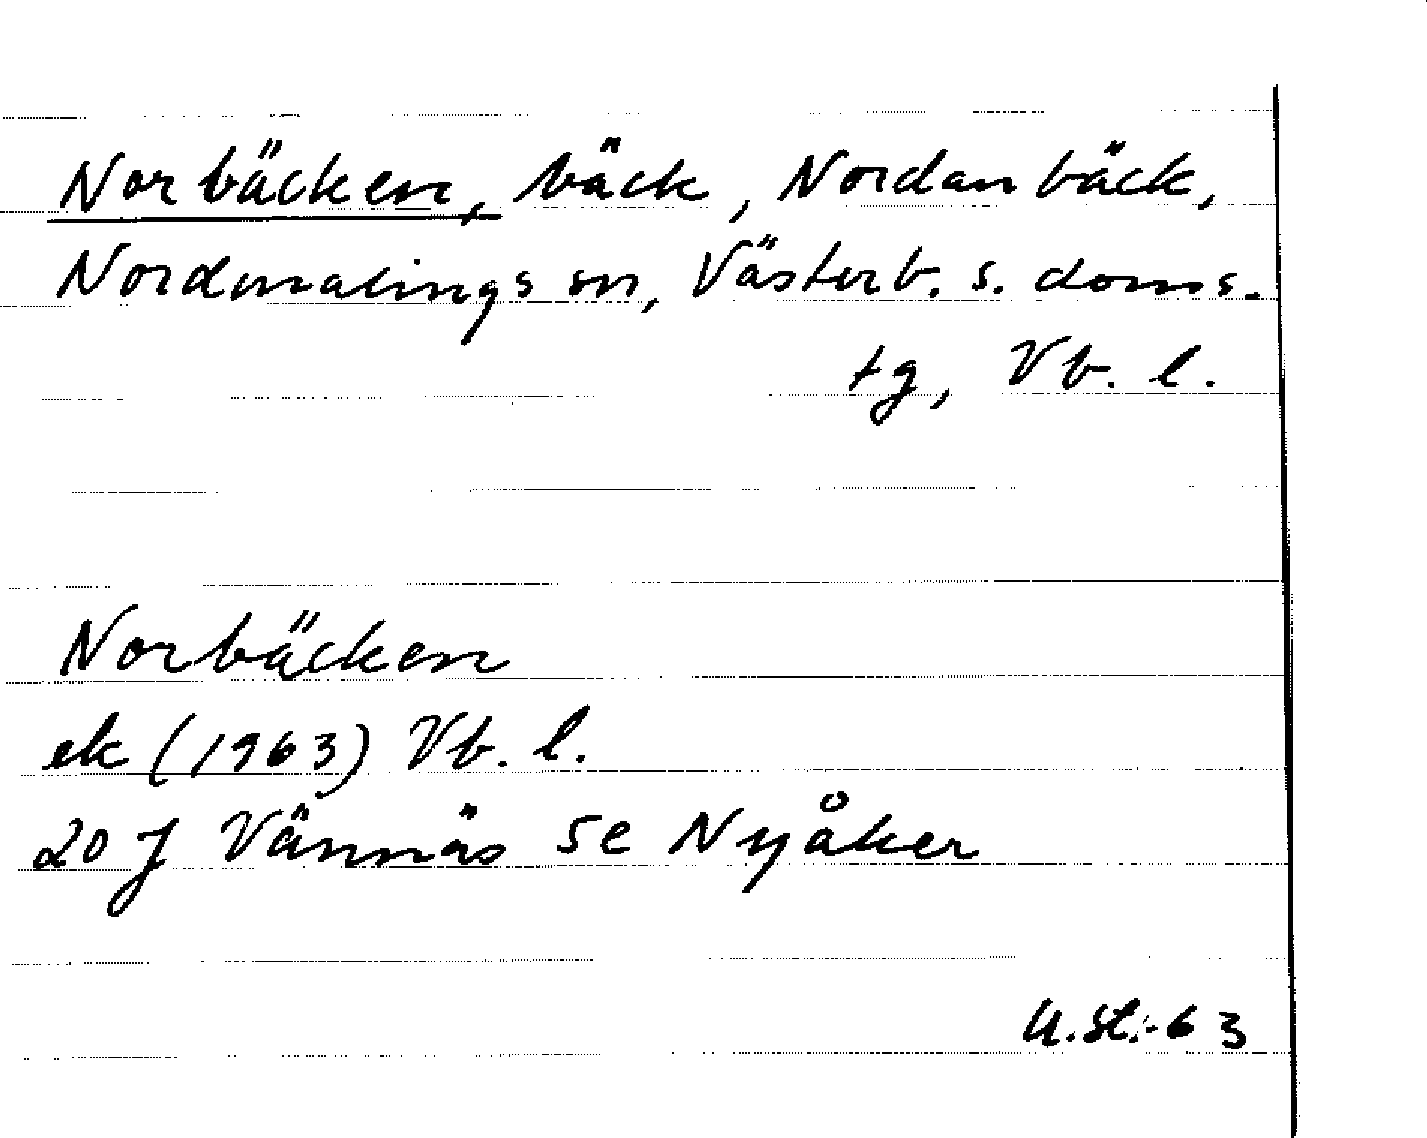 Norbäcken, bäck, Nordanbäck,
Nordmalings sn, Västerb. s. doms.
tg, Vb. l.
Norbäcken
ek (1963) Vb. l.
20 J Vännäs 5e Nyåker
U.St.-63